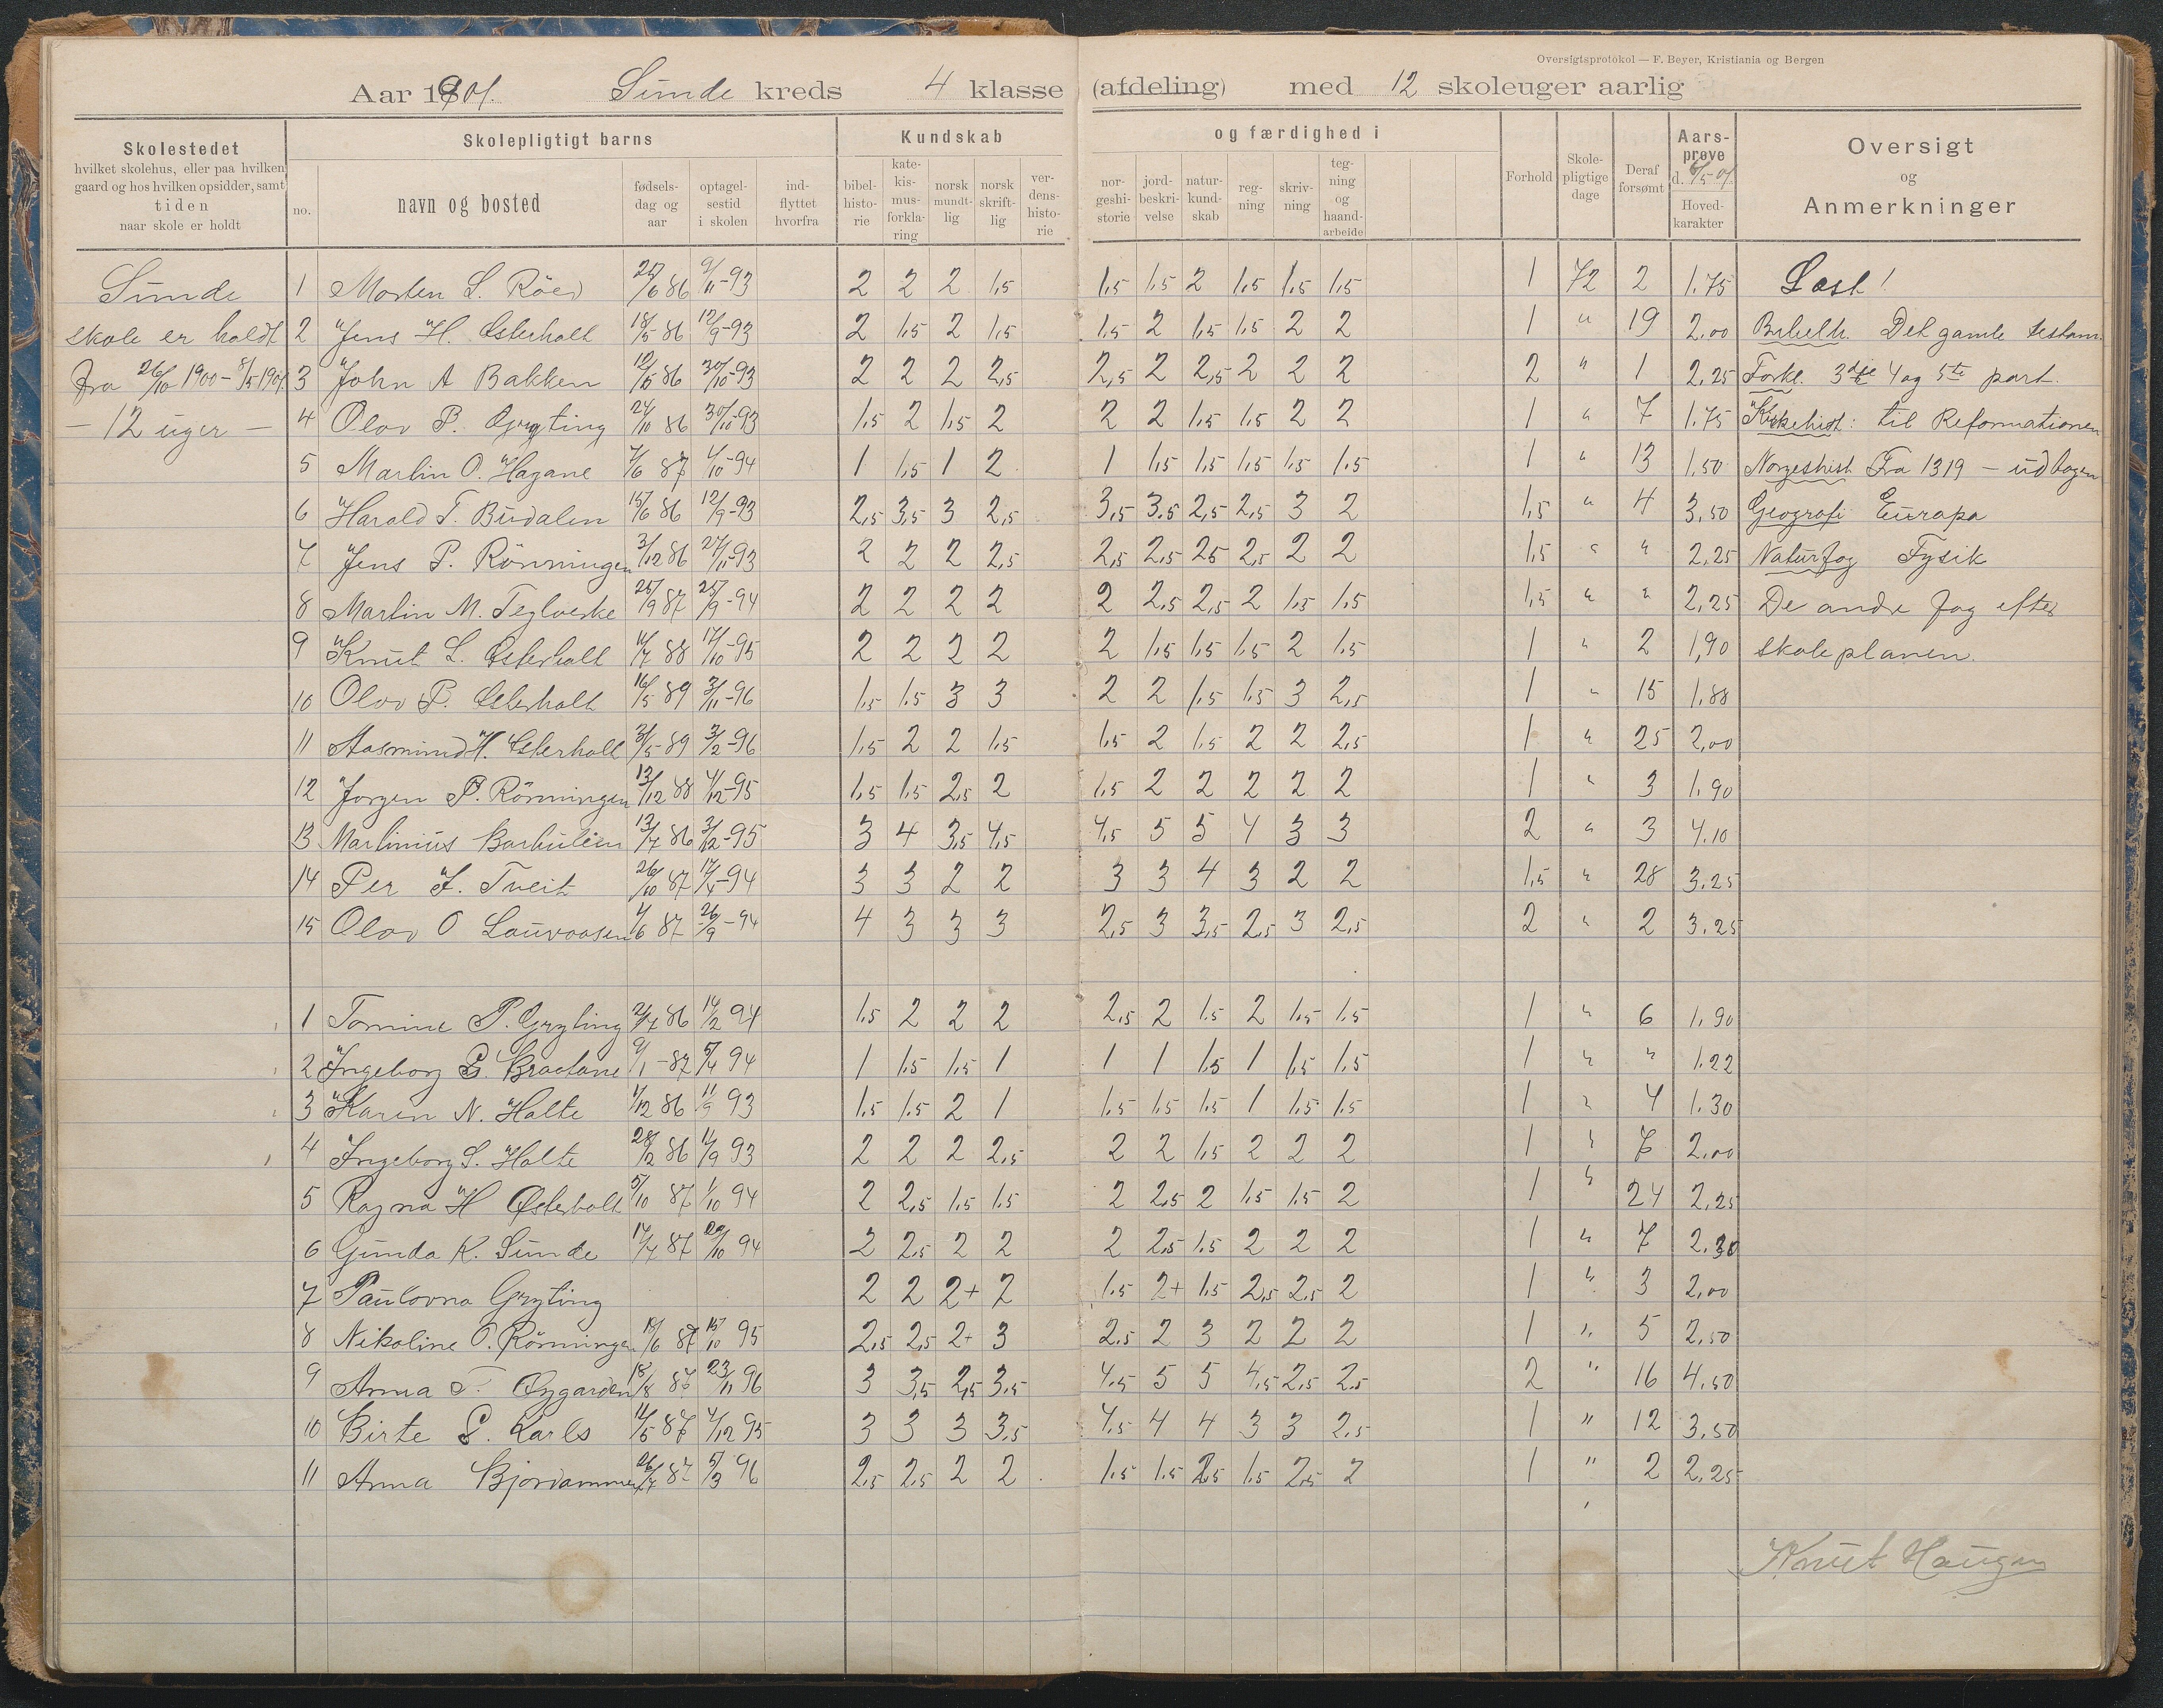 Oversigtsprotokol — F. Beyer, Kristiania og Bergen
Aar 1901. Sunde kreds 4 klasse (afdeling) med 12 skoleuger aarlig
Skolestedet
hvilket skolehus, eller paa hvilken
gaard og hos hvilken opsidder, samt
tiden
naar skole er holdt
Skolepligtigt barns
no.
navn og bosted
fødsels-
dag og
aar
optagel-
sestid
i skolen
ind-
flyttet
hvorfra
Kundskab
bibel-
histo-
rie
kate-
kis-
mus-
forkla-
ring
norsk
mundt-
lig
norsk
skrift-
lig
ver-
dens-
histo-
rie
og færdighed i
nor-
geshi-
storie
jord-
beskri-
velse
natur-
kund-
skab
reg-
ning
skriv-
ning
teg-
ning
og
haand-
arbeide
Forhold
Skole-
pligtige
dage
Deraf
forsømt
Aars-
prøve
d. 8/5 01.
Hoved-
karakter
Oversigt
og
Anmerkninger
Sunde
skole er holdt
fra 26/10 1900 – 8/5 1901.
– 12 uger –
1 Morten L. Röed 25/6 86 9/11-93 2 2 2 1,5 1,5 1,5 2 1,5 1,5 1,5 1 72 2 1,75 Læst!
2 Jens H. Österholt 18/5 86 12/9-93 2 1,5 2 1,5 1,5 2 1,5 1,5 2 2 1 " 19 2,00 Bibelh. Det gamle testam.
3 John A Bakken 12/5 86 30/10-93 2 2 2 2,5 2,5 2 2,5 2 2 2 2 " 1 2,25 Forkl. 3die 4 og 5te part.
4 Olav P. Gryting 24/10 86 30/10-93 1,5 2 1,5 2 2 2 1,5 1,5 2 2 1 " 7 1,75 Kirkehist: til Reformationen
5 Martin O. Hagane 7/6 87 4/10-94 1 1,5 1 2 1 1,5 1,5 1,5 1,5 1,5 1 " 13 1,50 Norgeshist Fra 1319 – ud bogen
6 Harald T. Budalen 15/6 86 12/9-93 2,5 3,5 3 2,5 3,5 3,5 2,5 2,5 3 2 1,5 " 4 3,50 Geografi Europa
7 Jens P. Rönningen 3/12 86 27/11-93 2 2 2 2,5 2,5 2,5 25 2,5 2 2 1,5 " " 2,25 Naturfag Fysik
8 Martin M. Teglverke 25/9 87 25/9-94 2 2 2 2 2 2,5 2,5 2 1,5 1,5 1,5 " " 2,25 De andre fag efter
9 Knut L. Österholt 11/7 88 17/10-95 2 2 2 2 2 1,5 1,5 1,5 2 1,5 1 " 2 1,90 skoleplanen.
10 Olav P. Österholt 16/5 89 3/11-96 1,5 1,5 3 3 2 2 1,5 1,5 3 2,5 1 " 15 1,88
11 Aasmund H. Österholt 31/5-89 3/2-96 1,5 2 2 1,5 1,5 2 1,5 2 2 2,5 1 " 25 2,00
12 Jørgen P. Rönningen 13/12 88 4/12-95 1,5 1,5 2,5 2 1,5 2 2 2 2 2 1 " 3 1,90
13 Martinius Barhulen 13/7 86 3/12-95 3 4 3,5 4,5 4,5 5 5 4 3 3 2 " 3 4,10
14 Per J. Tveit 26/10 87 17/4-94 3 3 2 2 3 3 4 3 2 2 1,5 " 28 3,25
15 Olav O Lauvaasen 4/6 87 26/9-94 4 3 3 3 2,5 3 3,5 2,5 3 2,5 2 " 2 3,25
1 Tomine P. Gryting 2/7 86 14/2 94 1,5 2 2 2 2,5 2 1,5 2 1,5 1,5 1 " 6 1,90
2 Ingeborg G. Braatane 9/1-87 5/4 94 1 1,5 1,5 1 1 1 1,5 1 1,5 1,5 1 " " 1.22
3 Karen N. Holte 1/12 86 11/9 93 1,5 1,5 2 1 1,5 1,5 1,5 1 1,5 1,5 1 " 4 1.30
4 Ingeborg S. Holte 28/2 86 11/9 93 2 2 2 2,5 2 2 1,5 2 2 2 1 " 7 2,00
5 Ragna H Østerholt 5/10 87 1/10 94 2 2,5 1,5 1,5 2 2,5 2 1,5 1,5 2 1 " 24 2,25
6 Gunda K. Sunde 14/7 87 29/10 94 2 2,5 2 2 2 2,5 1,5 2 2 2 1 " 7 2,30
7 Paulovna Gryting 2 2 2+ 2 1,5 2+ 1,5 2,5 2,5 2 1 " 3 2,00
8 Nikoline O. Rönningen 18/6 87 15/10 95 2,5 2,5 2+ 3 2,5 2 3 2 2 2 1 " 5 2,50
9 Anna T. Øygarden 18/8 87 23/11 96 3 3,5 2,5 3,5 4,5 5 5 4,5 2,5 2,5 2 " 16 4,50
10 Birte S. Karls 11/5 87 4/12 95 3 3 3 3,5 4,5 4 4 3 3 2,5 1 " 12 3,50
11 Anna Bjorvammen 26/7 87 5/3 96 2,5 2,5 2 2 1,5 1,5 2,5 1,5 2,5 2 1 " 2 2,25
Knut Haugen